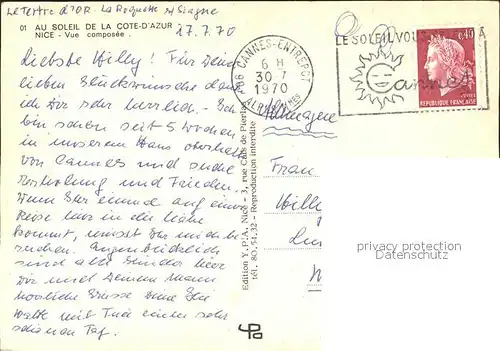 Le Tertre d'OR. La Roquette s/Siagne
01 AU SOLEIL DE LA COTE-D'AZUR
NICE - Vue composée.
27.7.70
Liebste Hilly! Für Deine
lieben Glückwünsche danke
ich Dir sehr herzlich. Ich
bin schon seit 5 Wochen
in unserem Haus oberhalb
von Cannes und suche
Erholung und Frieden.
Wenn Ihr einmal auf einer
Reise hier in die Nähe
kommt, müsst Ihr mich be-
suchen. Augenblicklich
sind alle Kinder hier
Dir und Deinem Mann
herzliche Grüsse
mit
einen sehr
schönen Tag.
Edition Y.P.A. Nice - 3, rue Cais de Pierlas
tél. 80.54.32 - Reproduction interdite
06 CANNES-ENTREPOT
6 H
30 - 7
1970
ALPES MARITIMES
LE SOLEIL VOUS
A
Cannes
0,40
REPUBLIQUE FRANÇAISE
Allemagne
Frau
privacy protection
Datenschutz